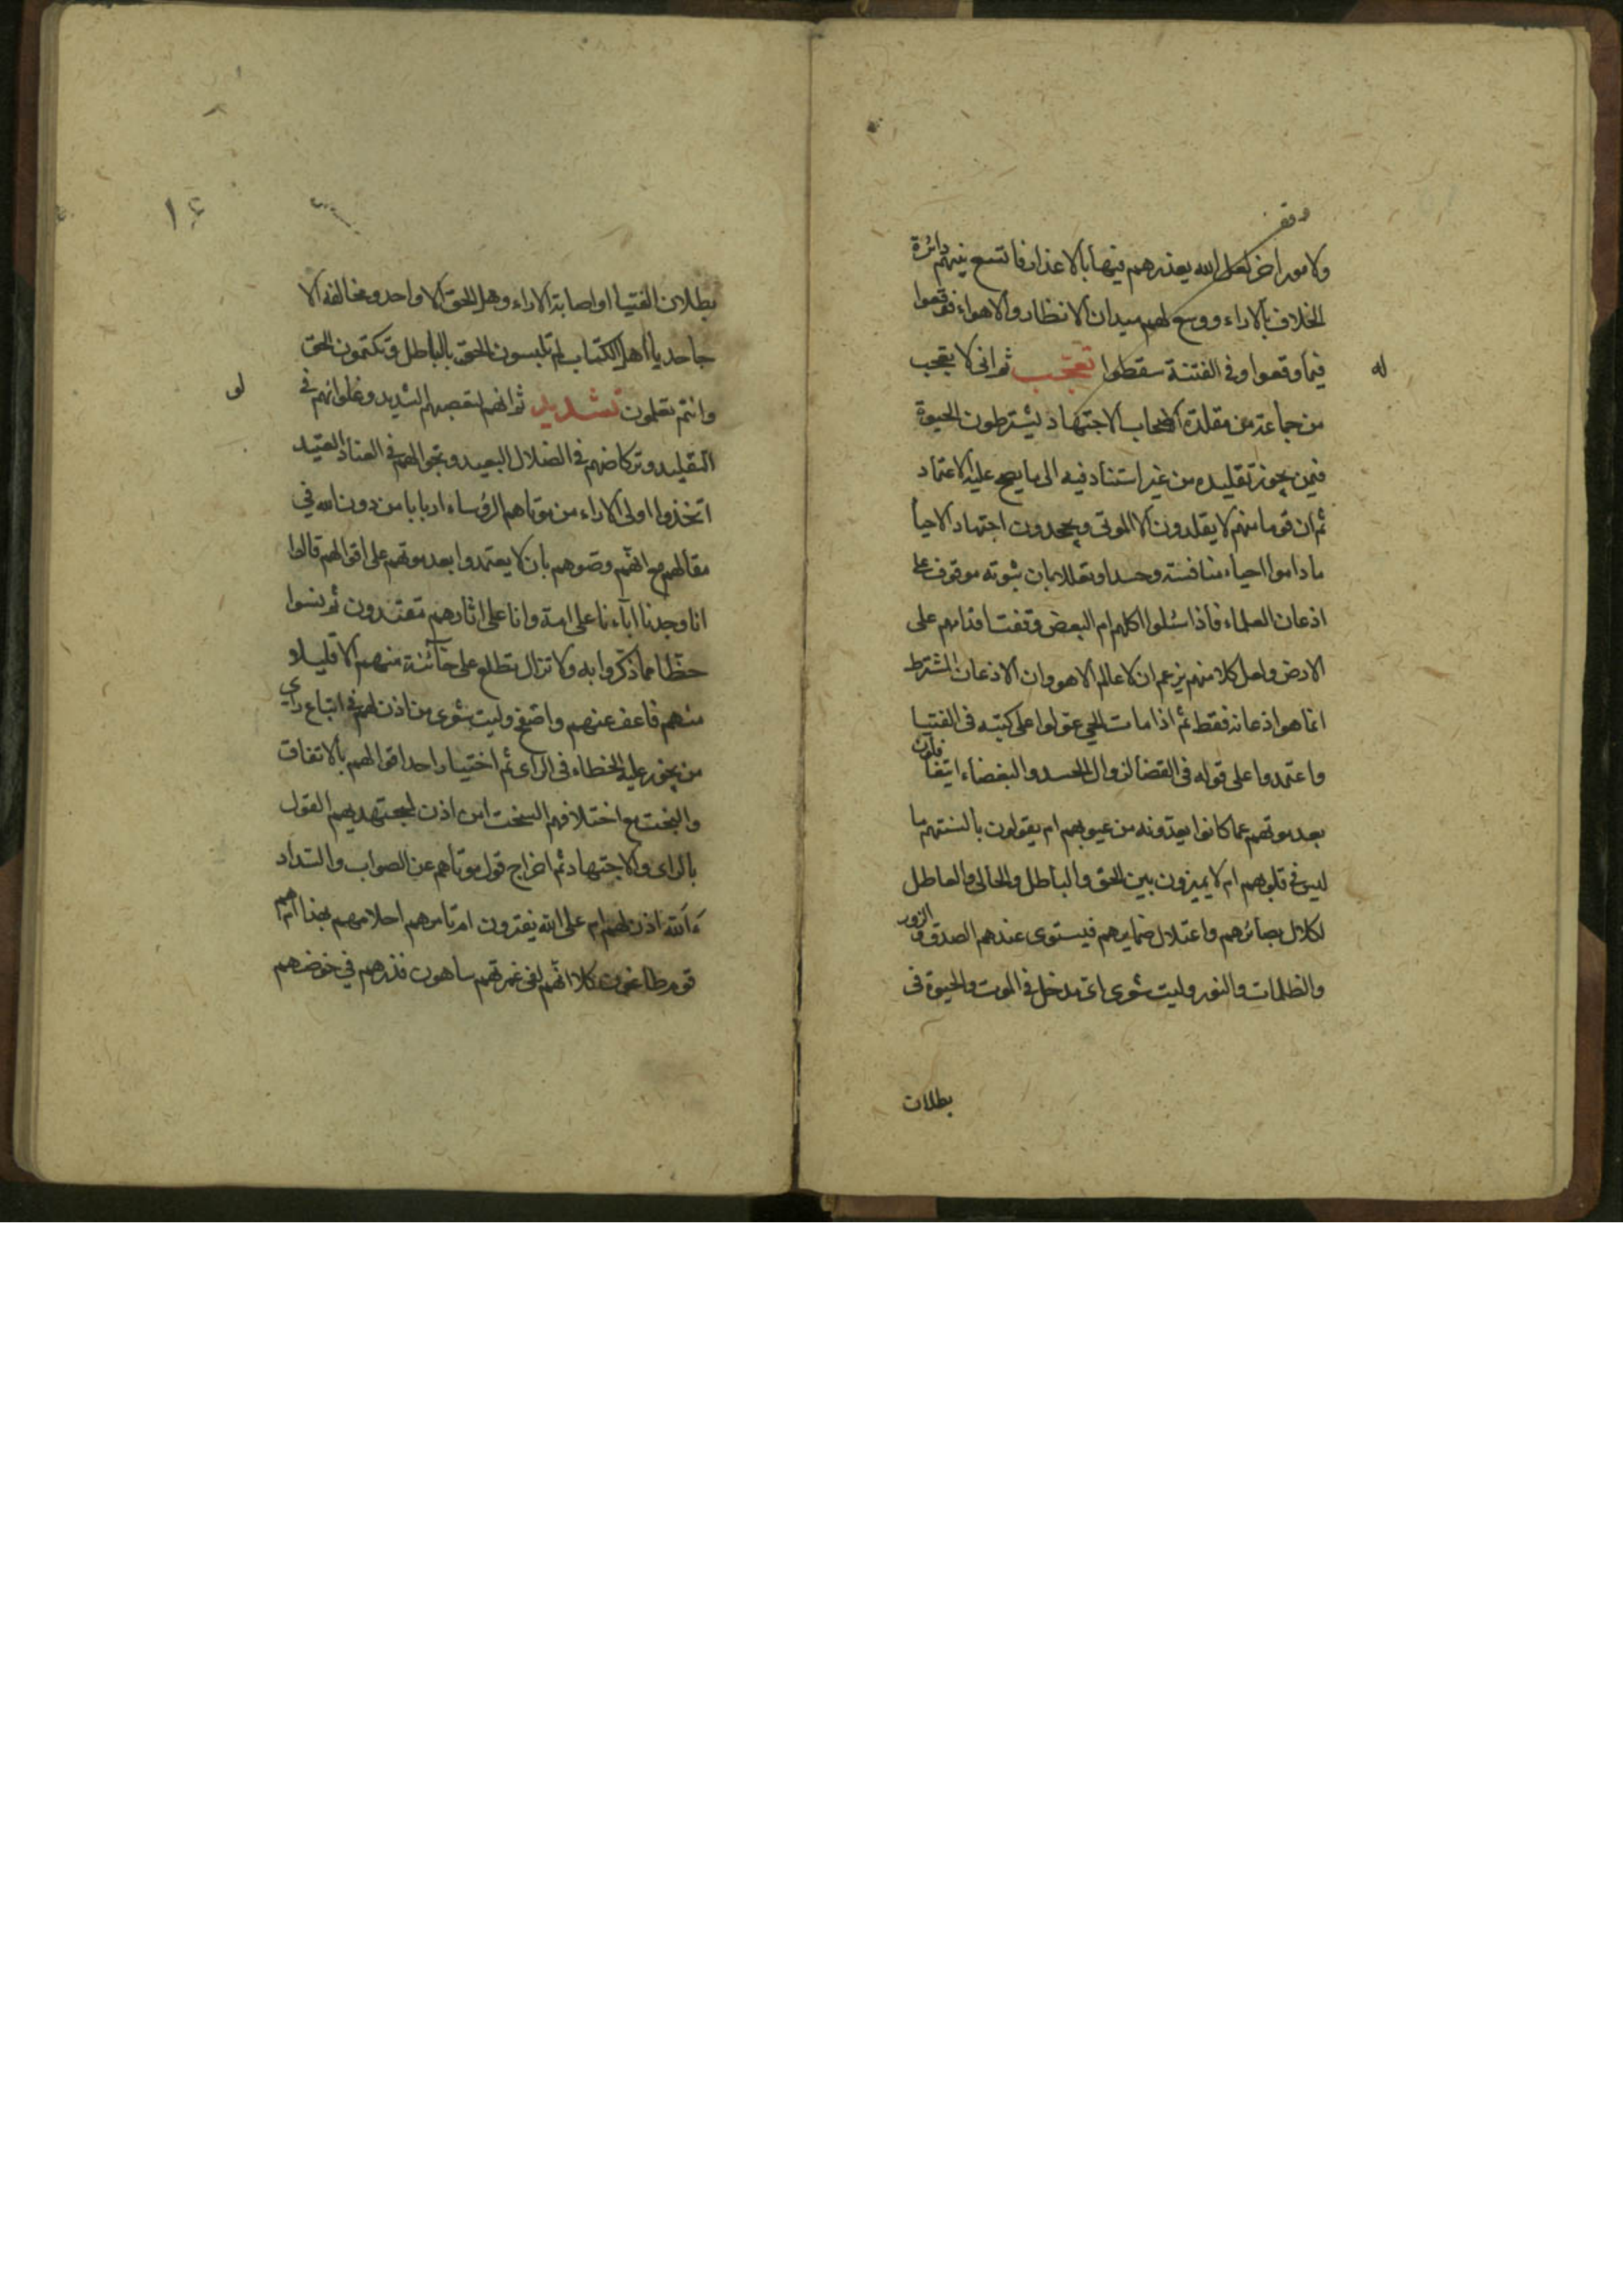 وقف
ولامور اخر لعل الله يعذرهم فيها بالاعذار فاتسع بينهم دائرة
الخلاف بالاراء ووسع لهم ميدان الانظار والاهواء فوقعوا
فيما وقعوا وفي الفتنة سقطوا تعجب ثم اني لا تعجب
له
من جماعة من مقلدة اصحاب الاجتهاد يشترطون الحيوة
فيمن يجوز تقليده من غير استناد فيه الى ما يصح عليه الاعتماد
ثم ان قوما منهم لا يقلدون الا الموتى ويجحدون اجتهاد الاحيا
ما داموا احياء منافسة وحسدا وتعللا بان ثبوته موقوف على
اذعان العلماء فاذا سُلوا اكلهم ام البعض وقفت اقدامهم على
الارض ولعل كلا منهم يزعم ان لا عالم الا هو وان الاذعان المشترط
انما هو اذعانه فقط ثم اذا مات الحي عولوا على كتبه في الفتيا
واعتمدوا على قوله في القضا لزوال الحسد والبغضاء ايتغافلون
بعد موتهم عما كانوا يعدونه من عيوبهم ام يقولون بالسنتهم ما
ليس في قلوبهم ام لا يميزون بين الحق والباطل والحالى والعاطل
لكلال بصائرهم واعتلال ضمايرهم فيستوى عندهم الصدق والزور
والظلمات والنور وليت شعرى اى مدخل في الموت والحيوة في
بطلان
١٤
بطلان الفتيا او اصابة الاراء وهل الحق الا واحد ومخالفه الا
جاحد يا اهل الكتاب لم تلبسون الحق بالباطل وتكتمون الحق
وانتم تعلمون تشديد ثم انهم لتعصبهم الشديد وغلوانهم في
لى
التقليد وتركاضهم في الضلال البعيد وتجوالهم في العناد العتيد
اتخذوا اولى الاراء من موتاهم الرؤساء اربابا من دون الله في
مقالهم مع انهم وصوهم بان لا يعتمدوا بعد موتهم على اقوالهم قالوا
انا وجدنا اباءنا على امة وانا على اثارهم مقتدون ثم نسوا
حظا مما ذكروا به ولا تزال تطلع على خآئنة منهم الا قليلا
منهم فاعف عنهم واصفح وليت شعرى من اذن لهم في اتباع راي
من يجوز عليه الخطاء في الراى ثم اختيار احد اقوالهم بالاتفاق
والبخت مع اختلافهم السخت امن اذن لمجتهديهم القول
بالراى والاجتهاد ثم اخراج قول موتاهم عن الصواب والسداد
ءآلله اذن لهم ام على الله يفترون ام تامرهم احلامهم بهذا ام هم
قوم طاغون كلا انهم لفي غمرتهم ساهون فذرهم في خوضهم